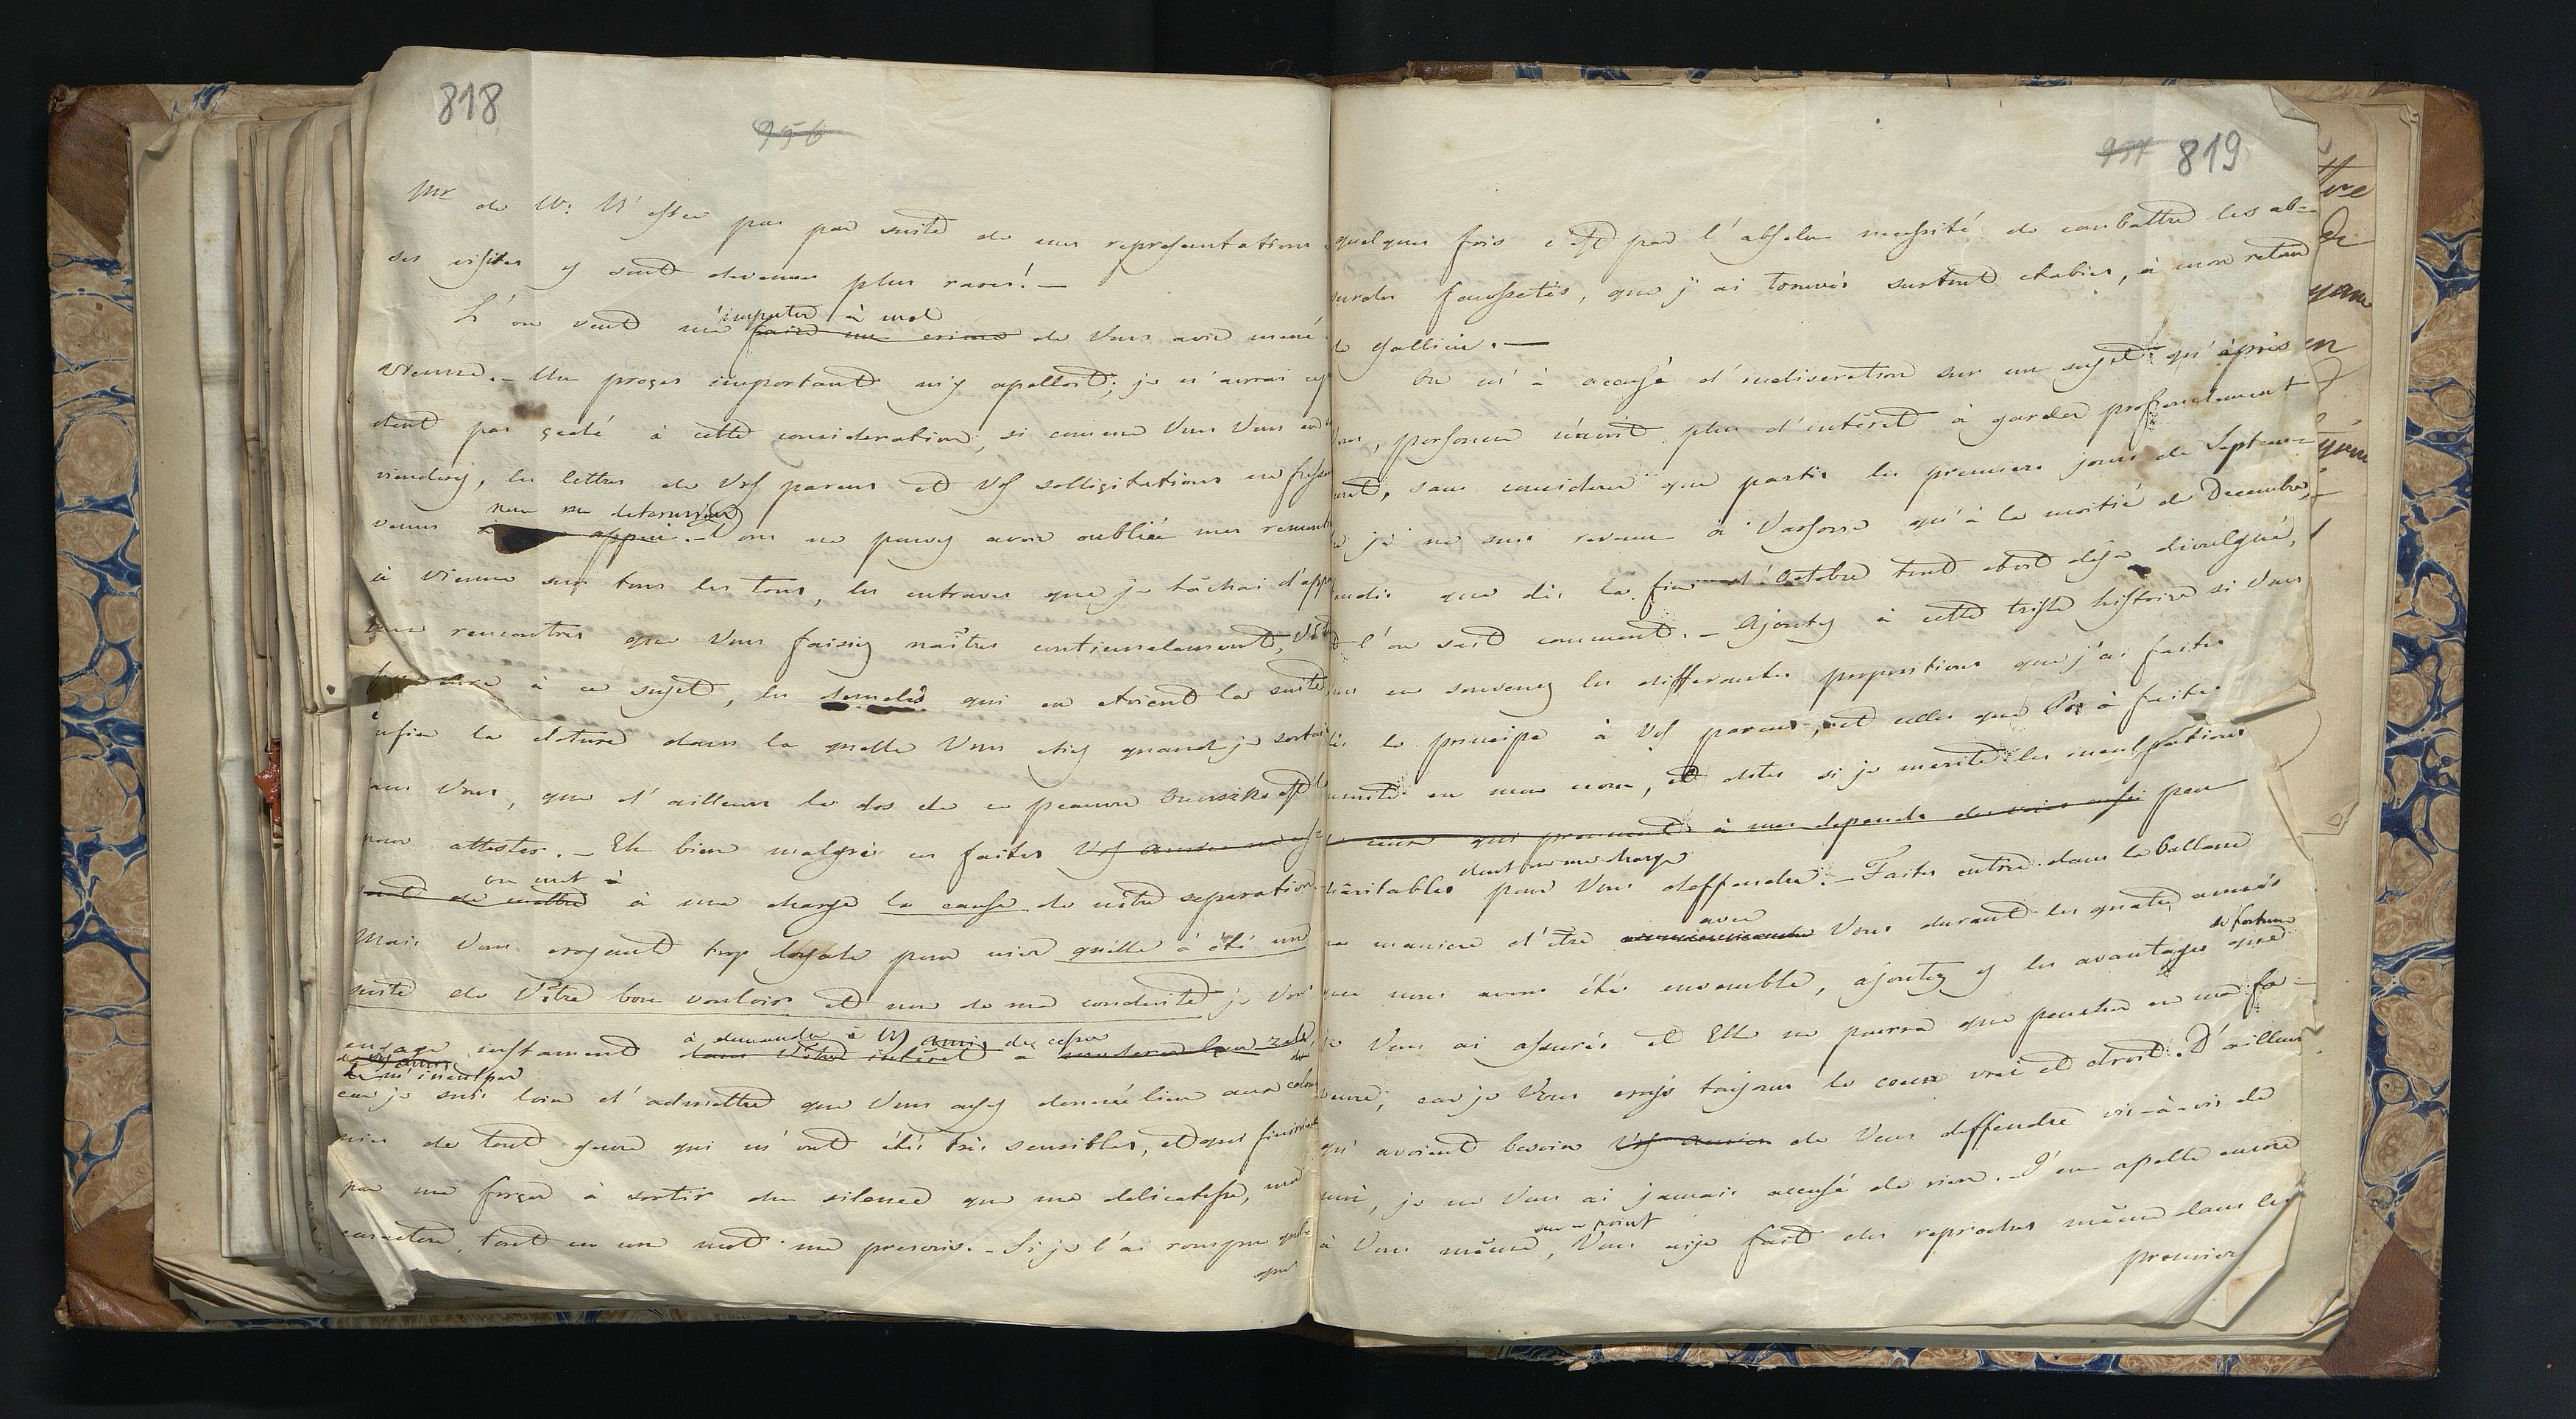 818
956
Mr de W: N'est ce pas par suite de mes representations
ses visites y sont devenues plus rares! —
L'on veut m'imputer à mal faire un crime de Vous avoir mené
Vienne. – Un proçes important m'y apelloit; je n'aurai cep
dent pas çedé à cette consideration, si comme Vous Vous en
viendrez, les lettres de Vos parens et Vos solliçitations ne fussent
venus me determiner appui. – Vous ne pouvez avoir oublié mes remont
à Vienne sur tous les tons, les entraves que je tâchai d'app
aux rencontres que Vous faisiez naître continuelement,
à ce sujet, les demelés qui en etoient la suite
enfin la cloture dans la quelle Vous etiez quand je sortai
sans Vous, que d'ailleurs le dos de ce peauvre est là
pour attester. – Eh bien malgré ces faites Vos amies
on met à tout de mettre à ma charge la cause de nôtre separation
Mais Vous croyant trop loyale pour nier qu'elle à été une
suite de Vôtre bon vouloir et non de ma conduite je Vous
engage instament à demander à Vos amis de cesser dans Vôtre intérêt à moderer leur zele
de Vos amis
de m'inculper
car je suis loin d'admettre que Vous ayez donnée lieu aux calom
nies de tout genre qui m'ont étés très sensibles, et qui finiroient
par me forçer à sortir du silence que ma delicatesse, mon
caractere, tout en un mot me prescris. – Si je l'ai rompu quel-
que
957 819
quelques fois c'est par l'absolue necessité de combattre les ab-
surdes faussetés, que j'ai trouvés surtout etablies, à mon retour
de Gallicie. —
On m'à accusé d'indiscretion sur un sujet qu'après
Vous, personne n'avoit plus d'intérêt à garder profondement
secret, sans considerer que partie les premiers jours de Septem-
bre je ne suis revenu à Varsovie qu'à la moitié de Decembre,
tandis que dès la fin d'Octobre tout etoit déja divulgué,
et l'on sait comment. – Ajoutez à cette triste histoire si Vous
Vous en souvenez les differentes propositions que j'ai faites
dès le principe à Vos parens, et celles que à faites
ensuite en mon nom, et dites si je merite les inculpations
de ceux qui prennent à mes depends des voies aussi peu
charitables dont on me charge pour Vous deffendre. – Faites entrer dans la ballance
ma maniere d'être avec Vous durant les quatre années
que nous avons étés ensemble, ajoutez y les avantages de fortune que
je Vous ai assurés et Elle ne pourra que pencher en ma fa-
veur, car je Vous crois toujours le coeur vrai et droit. D'ailleurs
qu'avoient besoin Vos amies de Vous deffendre vis-à-vis de
moi, je ne Vous ai jamais accusé de rien. – J'en apelle encore
à Vous même, Vous aije fait des reproches même dans les
premiers